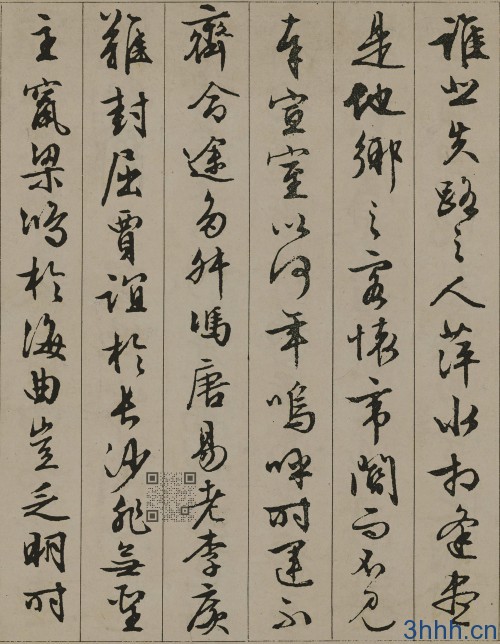 誰悲失路之人萍水相逢盡
是他鄉之客懷帝閽而不見
奉宣室以何年嗚呼時運不
齊命途多舛馮唐易老李廣
難封屈賈誼於長沙非無聖
主竄梁鴻於海曲豈乏明時
3hhh.cn